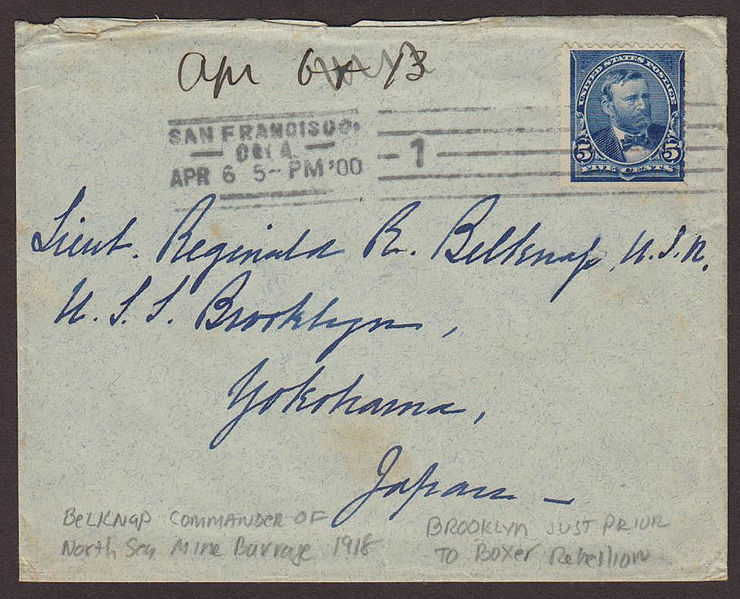 Apr 6 13
UNITED STATES POSTAGE
5 5
FIVE CENTS
SAN FRANCISCO,
CAL.
APR 6 5-PM '00
1
Lieut. Reginald R. Belknap, U.S.N.
U.S.S. Brooklyn,
Yokohama,
Japan –
BELKNAP COMMANDER OF
North Sea Mine Barrage 1918
BROOKLYN JUST PRIOR
TO BOXER Rebellion